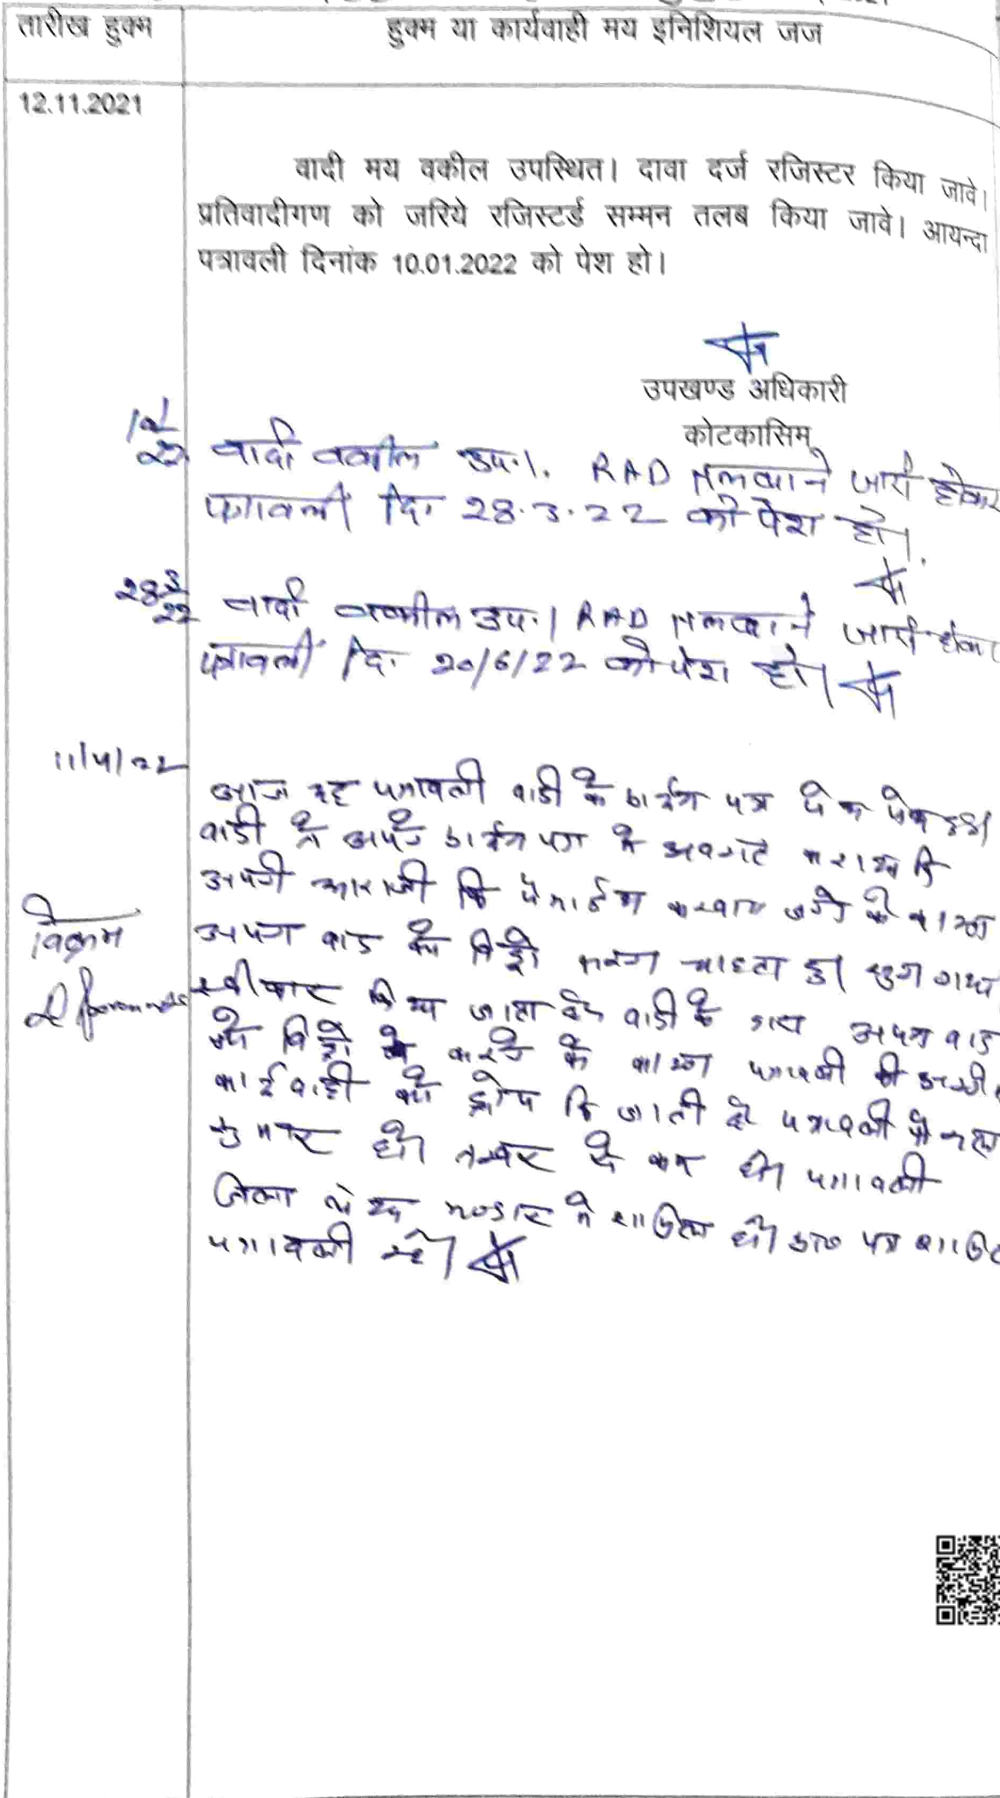 तारीख हुक्म
हुक्म या कार्यवाही मय इनिशियल जज
12.11.2021
वादी मय वकील उपस्थित। दावा दर्ज रजिस्टर किया जावे।
प्रतिवादीगण को जरिये रजिस्टर्ड सम्मन तलब किया जावे। आयन्दा
पत्रावली दिनांक 10.01.2022 को पेश हो।
उपखण्ड अधिकारी
कोटकासिम
वादी वकील उप.। RAD तलवाने जारी होकर
पत्रावली दि. 28.3.22 को पेश हो।
28/3/22
वादी वकील उप.। RAD तलवाने जारी होकर
पत्रावली दि. 20/6/22 को पेश हो।
11/4/22
आज यह पत्रावली वादी के पत्र पेश
वादी ने अपने में अवगत कराया कि
अपनी आराजी कि करवाये जाने के कारण
विक्रम
अपना वाद को विड्रो करना चाहता हु। सुना गया
स्वीकार किया जाता है वादी के द्वारा अपना वाद
को विड्रो करने के कारण पत्रावली की
कार्यवाही को ड्रोप कि जाती है पत्रावली
शुमार हो। नम्बर से कम हो। पत्रावली
जिला में हो। पत्र
पत्रावली रहे।